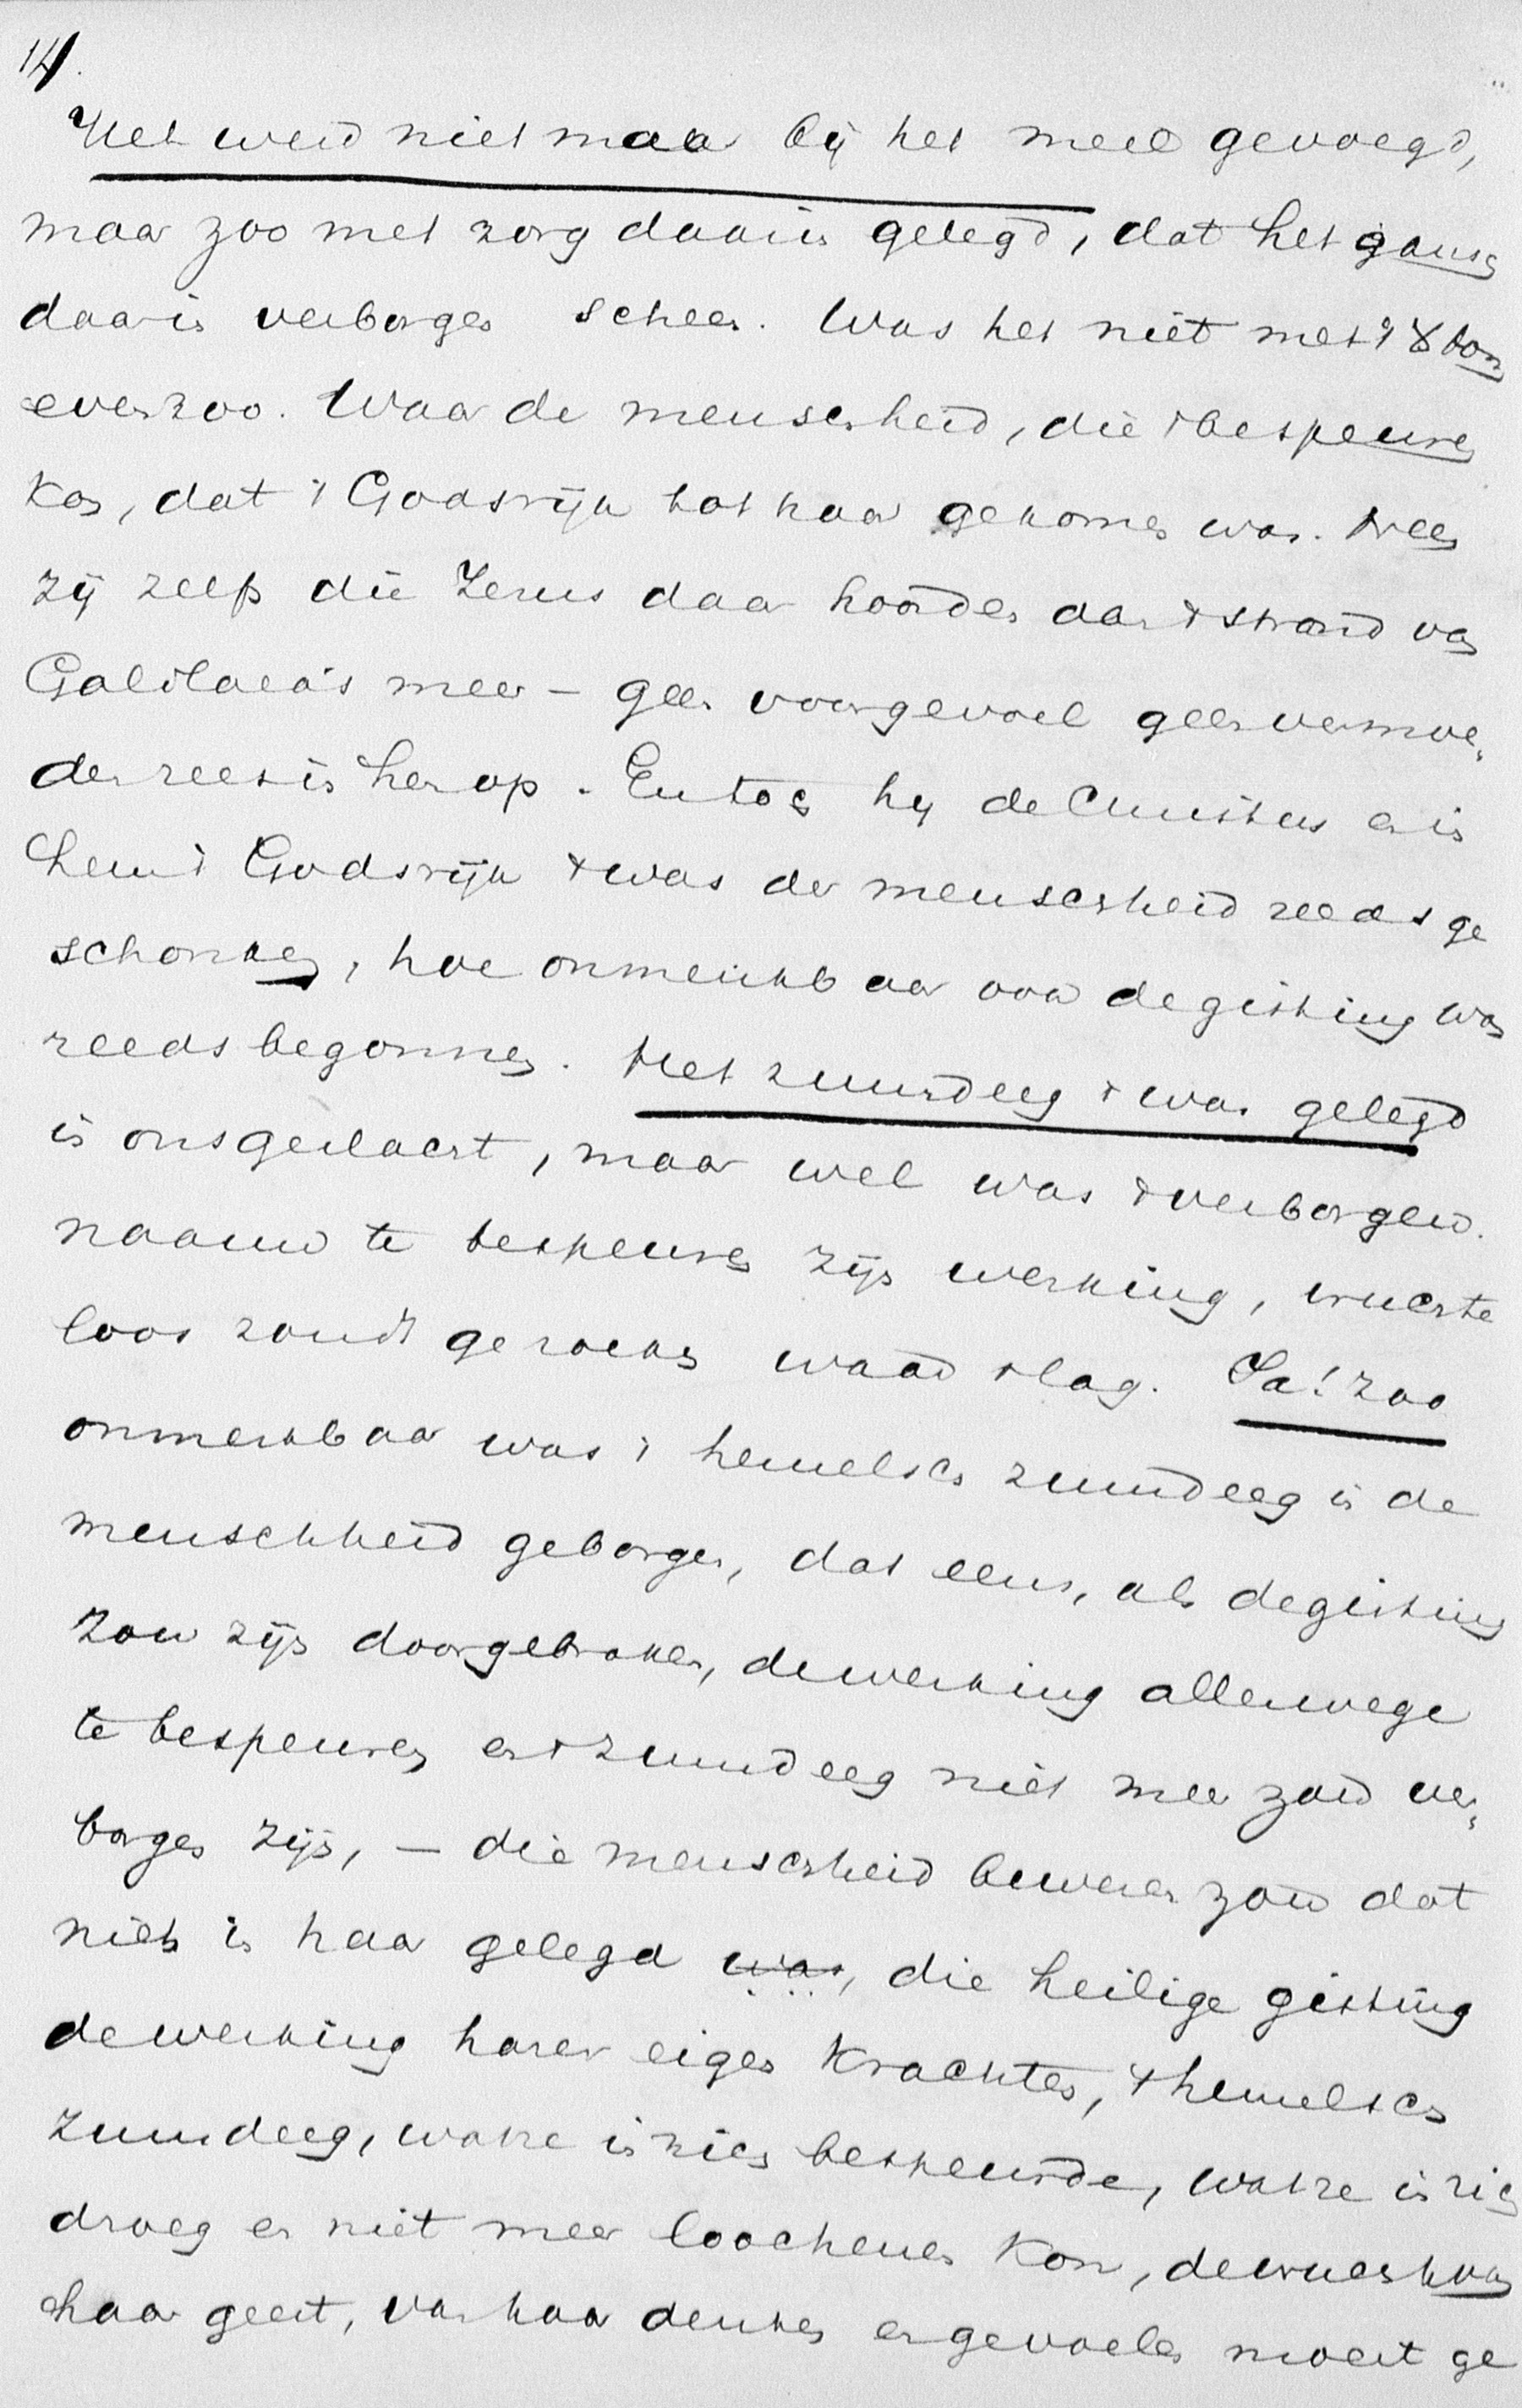 14.
Het werd niet maar bij het meel gevoegd,
maar zoo met zorg daarin gelegd, dat het gansch
daarin verborgen scheen. Was het niet met 't
evenzoo. Waar de menschheid, die 't bespeuren
kon, dat 't Godsrijk tot haar gekomen was. Neen
zij zelfs die Jezus daar hoorden aan 't strand van
Galilaea's meer – geen voorgevoel geen vermoe„
den rees in hen op. En toch hij de Christus en in
hem 't Godsrijk 't was der menschheid reeds ge
schonken, hoe onmerkbaar ook de gisting was
reeds begonnen. Het zuurdeeg 't was gelegd
in ons geslacht, maar wel was 't verborgen.
naauw te bespeuren zijn werking, vruchte
loos zoudt gezocht waar 't lag. Ja! zoo
onmerkbaar was 't hemelsch zuurdeeg in de
menschheid geborgen, dat eens, als de gisting
zou zijn doorgebroken, de werking allerwege
te bespeuren en 't zuurdeeg niet meer zou ver„
borgen zijn, – die menschheid beweren zou dat
niets in haar gelegd was, die heilige gisting
de werking harer eigen krachten, 't hemelsch
zuurdeeg, wat ze in zich bespeurde, wat ze in zich
droeg en niet meer loochenen kon, de vrucht van
haar geest, van haar denken en gevoelen moest ge